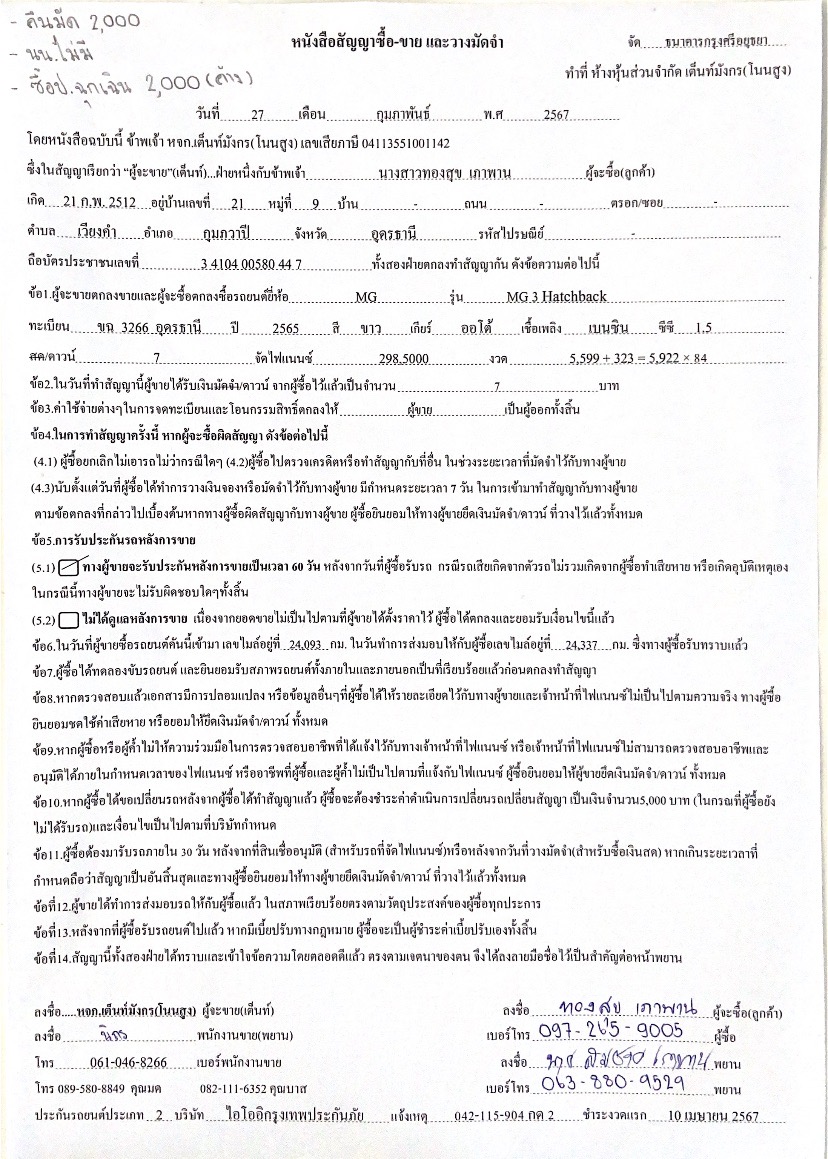 - คืนมัด 2,000
- นน.ไม่มี
- ซื้อป.ฉุกเฉิน 2,000 (ค้าง)
หนังสือสัญญาซื้อ-ขาย และวางมัดจำ
จัด ธนาคารกรุงศรีอยุธยา
ทำที่ ห้างหุ้นส่วนจำกัด เต็นท์มังกร(โนนสูง)
วันที่ 27 เดือน กุมภาพันธ์ พ.ศ 2567
โดยหนังสือฉบับนี้ ข้าพเจ้า หจก.เต็นท์มังกร(โนนสูง) เลขเสียภาษี 04113551001142
ซึ่งในสัญญาเรียกว่า "ผู้จะขาย"(เต็นท์)...ฝ่ายหนึ่งกับข้าพเจ้า นางสาวทองสุข เภาพาน ผู้จะซื้อ(ลูกค้า)
เกิด 21 ก.พ. 2512 อยู่บ้านเลขที่ 21 หมู่ที่ 9 บ้าน - ถนน - ตรอก/ซอย -
ตำบล เวียงคำ อำเภอ กุมภวาปี จังหวัด อุดรธานี รหัสไปรษณีย์ -
ถือบัตรประชาชนเลขที่ 3 4104 00580 44 7 ทั้งสองฝ่ายตกลงทำสัญญากัน ดังข้อความต่อไปนี้
ข้อ1.ผู้จะขายตกลงขายและผู้จะซื้อตกลงซื้อรถยนต์ยี่ห้อ MG รุ่น MG 3 Hatchback
ทะเบียน ขฉ 3266 อุดรธานี ปี 2565 สี ขาว เกียร์ ออโต้ เชื้อเพลิง เบนซิน ซีซี 1.5
สด/ดาวน์ 7 จัดไฟแนนซ์ 298,5000 งวด 5,599 + 323 = 5,922 × 84
ข้อ2.ในวันที่ทำสัญญานี้ผู้ขายได้รับเงินมัดจำ/ดาวน์ จากผู้ซื้อไว้แล้วเป็นจำนวน 7 บาท
ข้อ3.ค่าใช้จ่ายต่างๆในการจดทะเบียนและโอนกรรมสิทธิ์ตกลงให้ ผู้ขาย เป็นผู้ออกทั้งสิ้น
ข้อ4.ในการทำสัญญาครั้งนี้ หากผู้จะซื้อผิดสัญญา ดังข้อต่อไปนี้
(4.1) ผู้ซื้อยกเลิกไม่เอารถไม่ว่ากรณีใดๆ (4.2)ผู้ซื้อไปตรวจเครดิตหรือทำสัญญากับที่อื่น ในช่วงระยะเวลาที่มัดจำไว้กับทางผู้ขาย
(4.3)นับตั้งแต่วันที่ผู้ซื้อได้ทำการวางเงินจองหรือมัดจำไว้กับทางผู้ขาย มีกำหนดระยะเวลา 7 วัน ในการเข้ามาทำสัญญากับทางผู้ขาย
ตามข้อตกลงที่กล่าวไปเบื้องต้นหากทางผู้ซื้อผิดสัญญากับทางผู้ขาย ผู้ซื้อยินยอมให้ทางผู้ขายยึดเงินมัดจำ/ดาวน์ ที่วางไว้แล้วทั้งหมด
ข้อ5.การรับประกันรถหลังการขาย
(5.1) ทางผู้ขายจะรับประกันหลังการขายเป็นเวลา 60 วัน หลังจากวันที่ผู้ซื้อรับรถ กรณีรถเสียเกิดจากตัวรถไม่รวมเกิดจากผู้ซื้อทำเสียหาย หรือเกิดอุบัติเหตุเอง
ในกรณีนี้ทางผู้ขายจะไม่รับผิดชอบใดๆทั้งสิ้น
(5.2) ไม่ได้ดูแลหลังการขาย เนื่องจากยอดขายไม่เป็นไปตามที่ผู้ขายได้ตั้งราคาไว้ ผู้ซื้อได้ตกลงและยอมรับเงื่อนไขนี้แล้ว
ข้อ6.ในวันที่ผู้ขายซื้อรถยนต์คันนี้เข้ามา เลขไมล์อยู่ที่ 24,093 กม. ในวันทำการส่งมอบให้กับผู้ซื้อเลขไมล์อยู่ที่ 24,337 กม. ซึ่งทางผู้ซื้อรับทราบแล้ว
ข้อ7.ผู้ซื้อได้ทดลองขับรถยนต์ และยินยอมรับสภาพรถยนต์ทั้งภายในและภายนอกเป็นที่เรียบร้อยแล้วก่อนตกลงทำสัญญา
ข้อ8.หากตรวจสอบแล้วเอกสารมีการปลอมแปลง หรือข้อมูลอื่นๆที่ผู้ซื้อได้ให้รายละเอียดไว้กับทางผู้ขายและเจ้าหน้าที่ไฟแนนซ์ไม่เป็นไปตามความจริง ทางผู้ซื้อ
ยินยอมชดใช้ค่าเสียหาย หรือยอมให้ยึดเงินมัดจำ/ดาวน์ ทั้งหมด
ข้อ9.หากผู้ซื้อหรือผู้ค้ำไม่ให้ความร่วมมือในการตรวจสอบอาชีพที่ได้แจ้งไว้กับทางเจ้าหน้าที่ไฟแนนซ์ หรือเจ้าหน้าที่ไฟแนนซ์ไม่สามารถตรวจสอบอาชีพและ
อนุมัติได้ภายในกำหนดเวลาของไฟแนนซ์ หรืออาชีพที่ผู้ซื้อและผู้ค้ำไม่เป็นไปตามที่แจ้งกับไฟแนนซ์ ผู้ซื้อยินยอมให้ผู้ขายยึดเงินมัดจำ/ดาวน์ ทั้งหมด
ข้อ10.หากผู้ซื้อได้ขอเปลี่ยนรถหลังจากผู้ซื้อได้ทำสัญญาแล้ว ผู้ซื้อจะต้องชำระค่าดำเนินการเปลี่ยนรถเปลี่ยนสัญญา เป็นเงินจำนวน5,000 บาท (ในกรณีที่ผู้ซื้อยัง
ไม่ได้รับรถ)และเงื่อนไขเป็นไปตามที่บริษัทกำหนด
ข้อ11.ผู้ซื้อต้องมารับรถภายใน 30 วัน หลังจากที่สินเชื่ออนุมัติ (สำหรับรถที่จัดไฟแนนซ์)หรือหลังจากวันที่วางมัดจำ(สำหรับซื้อเงินสด) หากเกินระยะเวลาที่
กำหนดถือว่าสัญญาเป็นอันสิ้นสุดและทางผู้ซื้อยินยอมให้ทางผู้ขายยึดเงินมัดจำ/ดาวน์ ที่วางไว้แล้วทั้งหมด
ข้อที่12.ผู้ขายได้ทำการส่งมอบรถให้กับผู้ซื้อแล้ว ในสภาพเรียบร้อยตรงตามวัตถุประสงค์ของผู้ซื้อทุกประการ
ข้อที่13.หลังจากที่ผู้ซื้อรับรถยนต์ไปแล้ว หากมีเบี้ยปรับทางกฎหมาย ผู้ซื้อจะเป็นผู้ชำระค่าเบี้ยปรับเองทั้งสิ้น
ข้อที่14.สัญญานี้ทั้งสองฝ่ายได้ทราบและเข้าใจข้อความโดยตลอดดีแล้ว ตรงตามเจตนาของตน จึงได้ลงลายมือชื่อไว้เป็นสำคัญต่อหน้าพยาน
ลงชื่อ.....หจก.เต็นท์มังกร(โนนสูง) ผู้จะขาย(เต็นท์) ลงชื่อ ทองสุข เภาพาน ผู้จะซื้อ(ลูกค้า)
ลงชื่อ พนักงานขาย(พยาน) เบอร์โทร 097-265-9005 ผู้ซื้อ
โทร 061-046-8266 เบอร์พนักงานขาย ลงชื่อ พยาน
โทร 089-580-8849 คุณมด 082-111-6352 คุณบาส เบอร์โทร 063-880-9529 พยาน
ประกันรถยนต์ประเภท 2 บริษัท ไอโออิกรุงเทพประกันภัย แจ้งเหตุ 042-115-904 กด 2 ชำระงวดแรก 10 เมษายน 2567